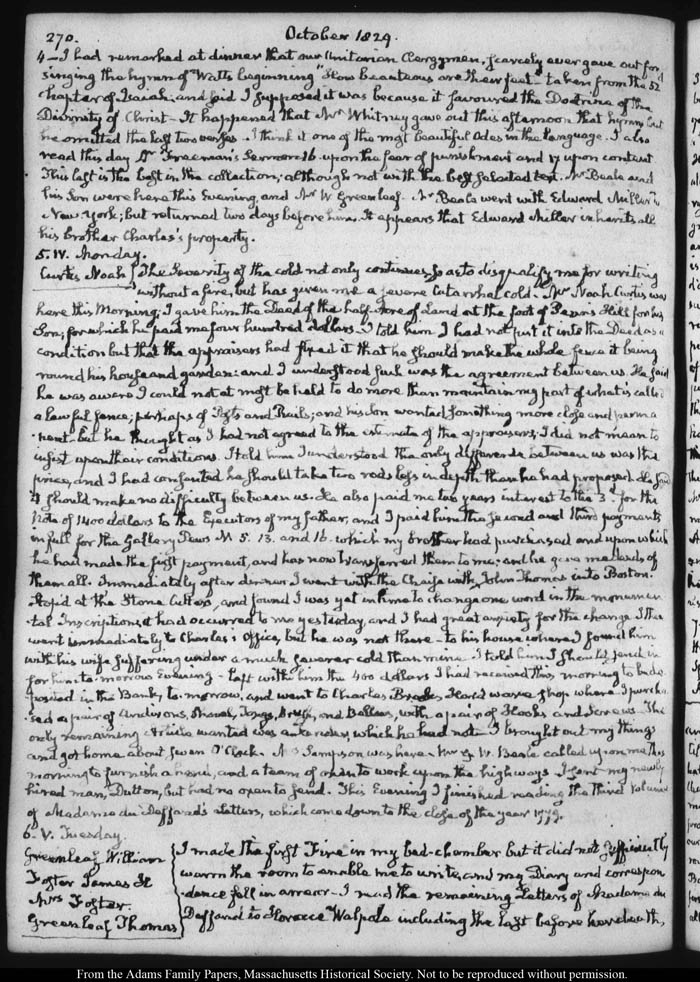 270.
October 1829.
4.— I had remarked at dinner that our Unitarian Clergymen, scarcely ever gave out for
singing the hymn of Watts beginning "How beauteous are their feet" taken from the 52d
chapter of Isaiah; and said I supposed it was because it favoured the Doctrine of the
Divinity of Christ— It happened that Mr Whitney gave out this afternoon that hymn, but
he omitted the last two verses. I think it one of the most beautiful Odes in the language. I also
read this day Dr Freeman's Sermon 16. upon the fear of punishment and 17 upon content
This last is the best in the collection; although not with the best selected text. Mr Beale and
his Son were here this Evening, and Mr W Greenleaf. Mr Beale went with Edward Miller to
New York; but returned two days before him. It appears that Edward Miller inherits all
his brother Charles's property.
5. IV. Monday.
Curtis Noah
The severity of the cold not only continues, so as to disqualify me for writing
without a fire, but has given me a severe Catarrhal cold— Mr Noah Curtis was
here this Morning; I gave him the Deed of the half-acre of Land at the foot of Penns Hill for his
Son; for which he paid me four hundred dollars— I told him I had not put it into the Deed as a
condition but that the appraisers had fixed it that he should make the whole fence it being
round his house and garden: and I understood such was the agreement between us. He said
he was aware I could not at most be held to do more than maintain my part of what is called
a lawful fence; perhaps of Posts and Rails; and his Son wanted something more close and perma
nent. but he thought as I had not agreed to the estimate of the appraisers, I did not mean to
insist upon their conditions. I told him I understood the only difference between us was the
price, and I had consented he should take two rods less in depth than he had proposed. He said
it should make no difficulty between us. He also paid me two years interest to the 3d. for the
Note of 1400 dollars to the Executors of my father, and I paid him the second and third payments
in full for the Gallery Pews N. 5. 13. and 16. which my brother had purchased and upon which
he had made the first payment, and has now transferred them to me; and he gave me deeds of
them all. Immediately after dinner I went with the Chaise with John Thomas into Boston.
Stop'd at the Stone Cutters, and found I was yet in time to change one word in the monumen
tal Inscription, it had occurred to me yesterday, and I had great anxiety for the change I then
went immediately to Charles's Office, but he was not there— to his house where I found him
with his wife suffering under a much severer cold than mine. I told him I should send in
for him to-morrow Evening— left with him the 400 dollars I had received this morning to be de
posited in the Bank, to-morrow, and went to Charles Hard ware shop where I purcha
sed a pair of Andirons, Shovel, Tongs, and Bellows, with a pair of Hooks and Screws. The
only remaining wanted was a which he had not— I brought out my things
and got home about seven O'Clock. Sampson was here. Mr G. W. Beale called upon me this
morning to furnish a hand, and a team of oxen to work upon the highways I sent my newly
hired man, Dutton, but had no oxen to send. This Evening I finished reading the third volume
of Madame du Deffand's Letters, which come down to the close of the year 1779.
6. V. Tuesday.
Greenleaf William
Foster James H
Mrs Foster.
Greenleaf Thomas
I made the first Fire in my bed-chamber but it did not sufficiently
warm the room to enable me to write, and my Diary and correspon
dence fell in arrear— I read the remaining Letters of Madame du
Deffand to Horace Walpole including the last before her death,
From the Adams Family Papers, Massachusetts Historical Society. Not to be reproduced without permission.